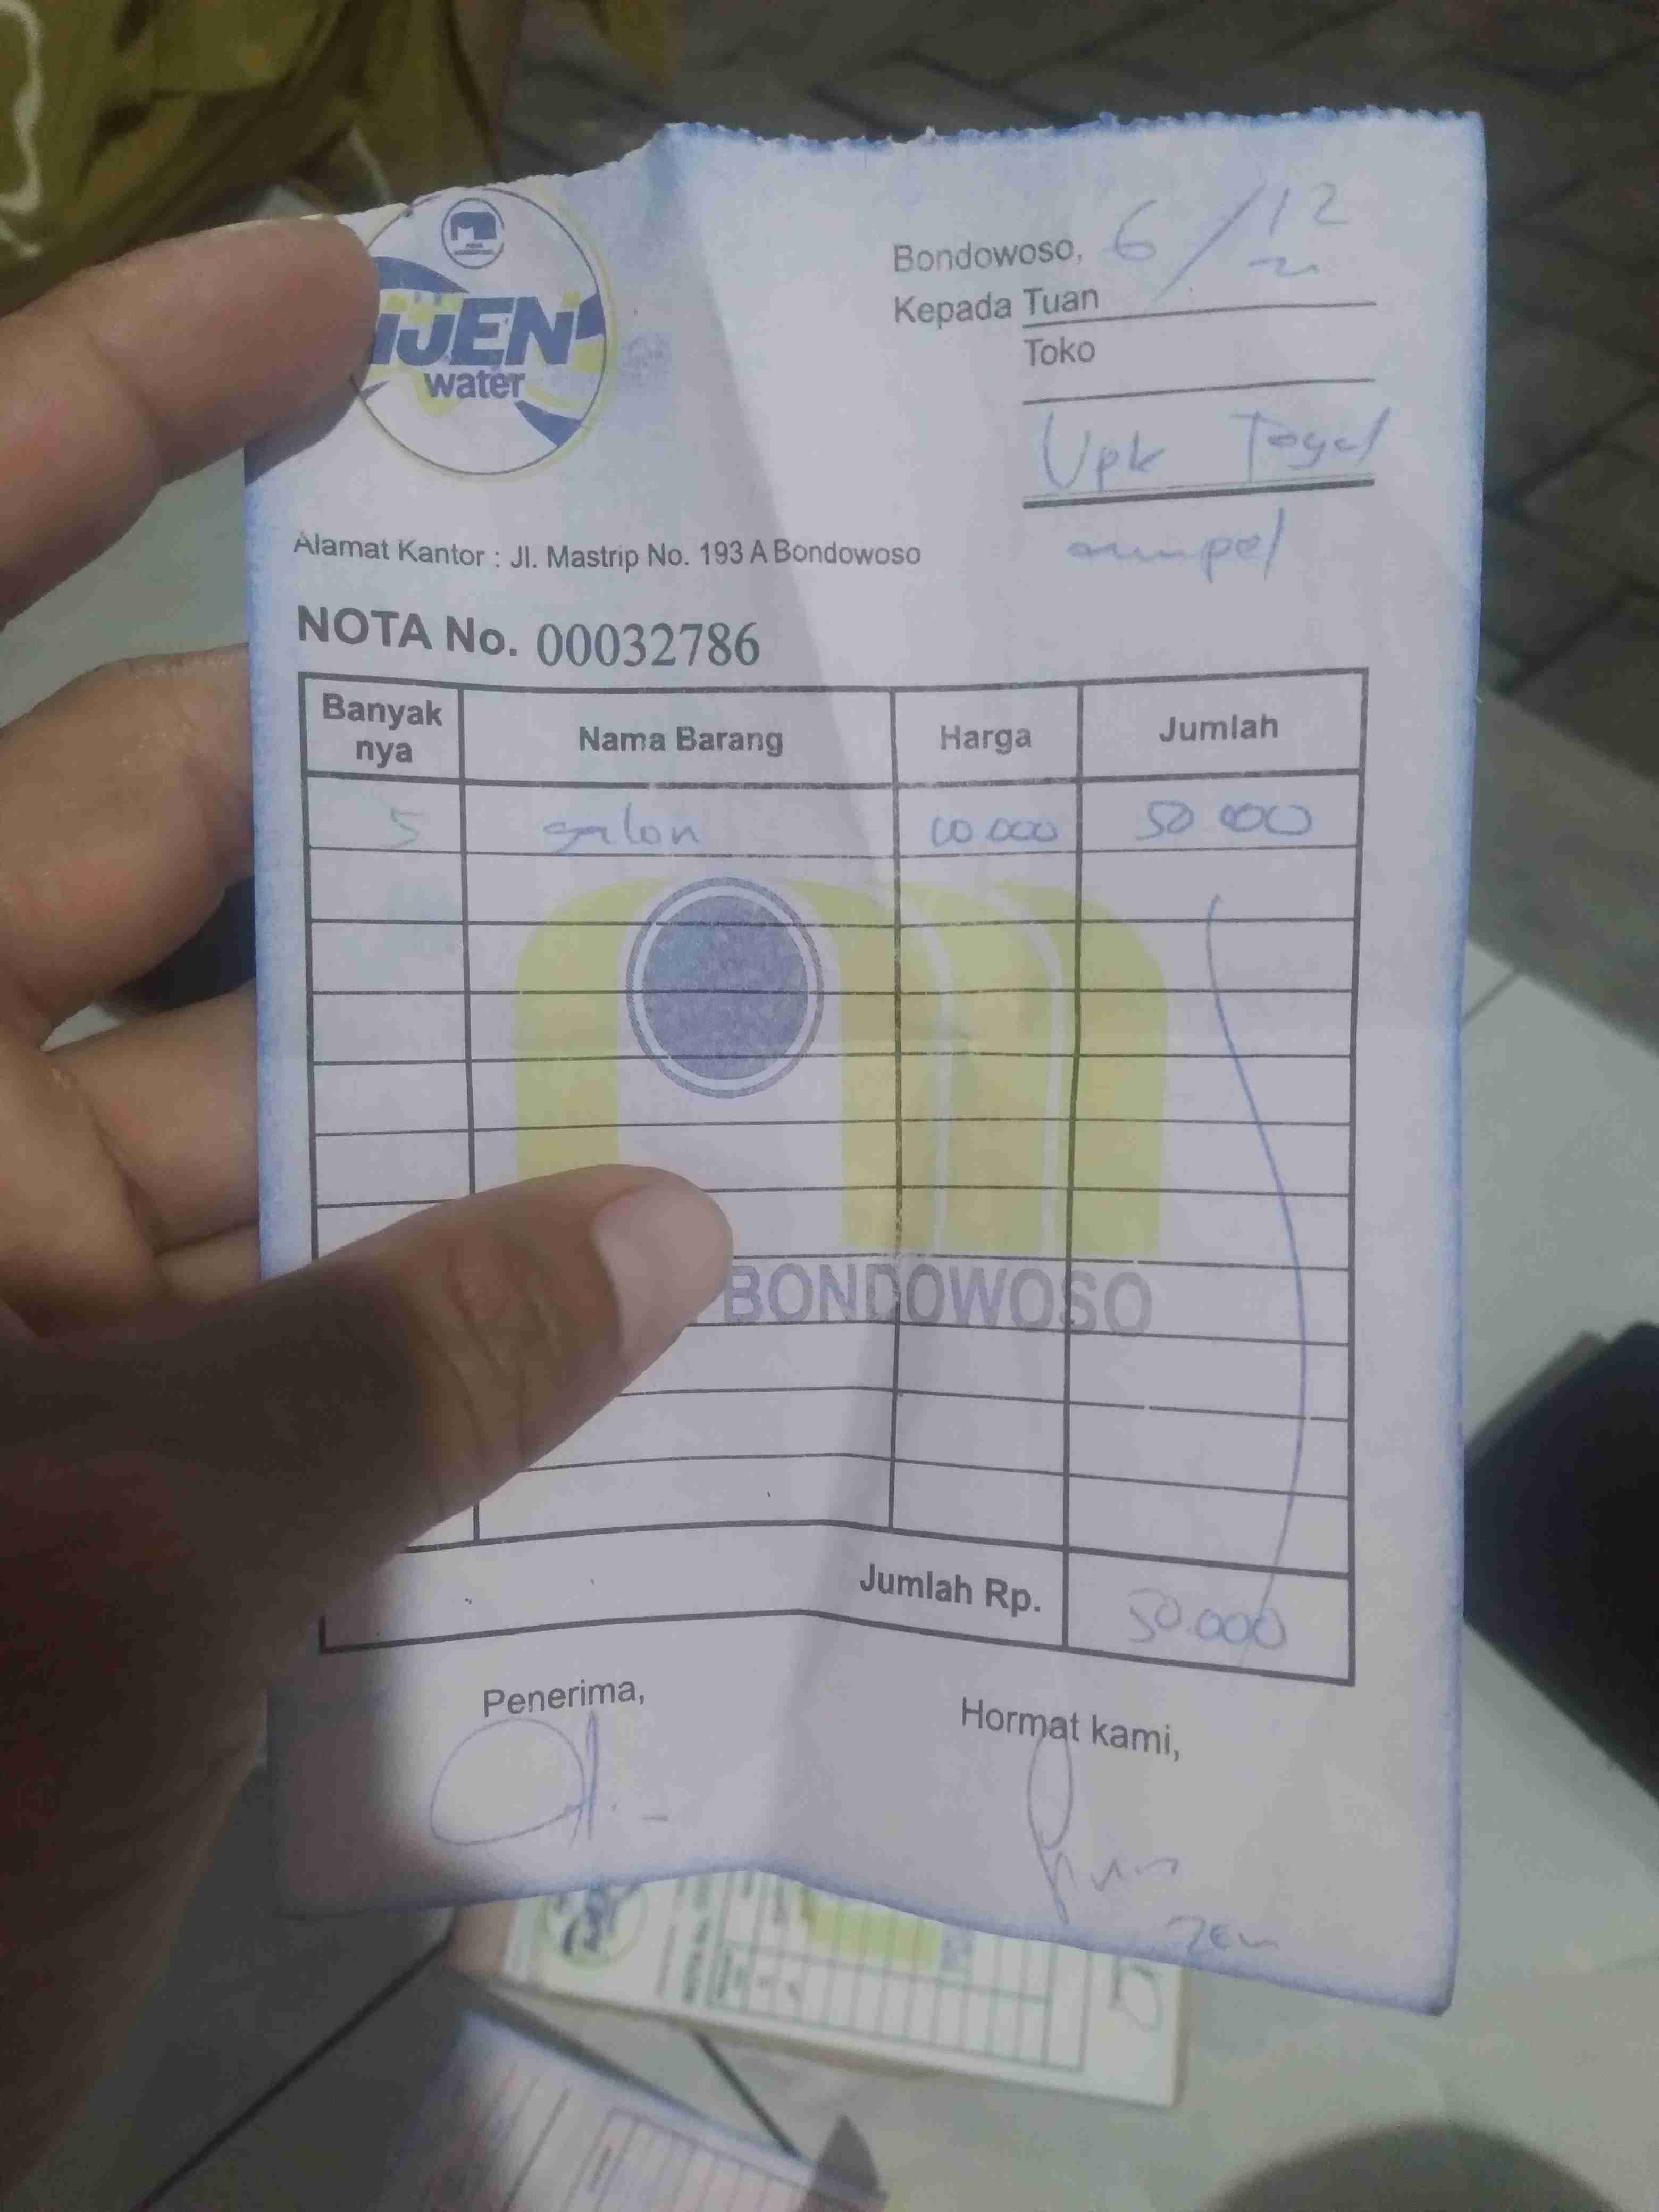 iJEN
water
Bondowoso, 6/12
Kepada Tuan
Toko
Upk Togel
ampel
Alamat Kantor : Jl. Mastrip No. 193 A Bondowoso
NOTA No. 00032786
Banyak nya Nama Barang Harga Jumlah
5 galon 10.000 50 000
BONDOWOSO
Jumlah Rp. 50.000
Penerima, Hormat kami,